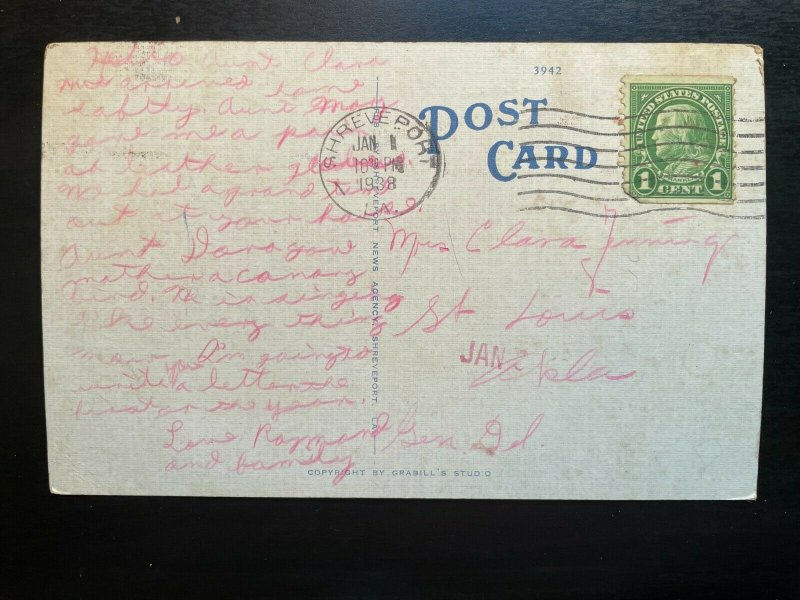 Hello Aunt Clara
3942
We arrived home
saftly. Aunt May
gave me a pair
of leather gloves.
We had a grand time
out at your house.
Aunt Dora gave
mother a canary
bird. He is singing
like every thing
now. I'm going to
you
write a letter the
first of the year.
Love Raymond
and family
SHREVEPORT
JAN 1
PM
1938
LA.
SHREVEPORT NEWS AGENCY, SHREVEPORT, LA.
POST
CARD
UNITED STATES POSTAGE
1 CENT 1
Mrs Clara Jennings
St Louis
JAN
Okla
Gen. Del.
COPYRIGHT BY GRABILL'S STUDIO